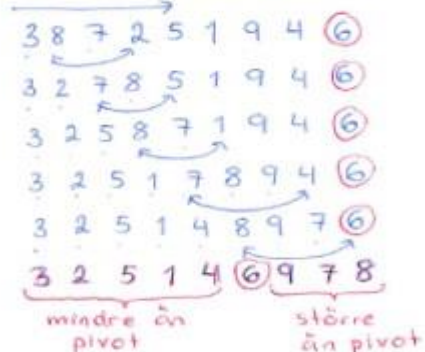 3 8 7 2 5 1 9 4 6
3 2 7 8 5 1 9 4 6
3 2 5 8 7 1 9 4 6
3 2 5 1 7 8 9 4 6
3 2 5 1 4 8 9 7 6
3 2 5 1 4 6 9 7 8
mindre än pivot
större än pivot